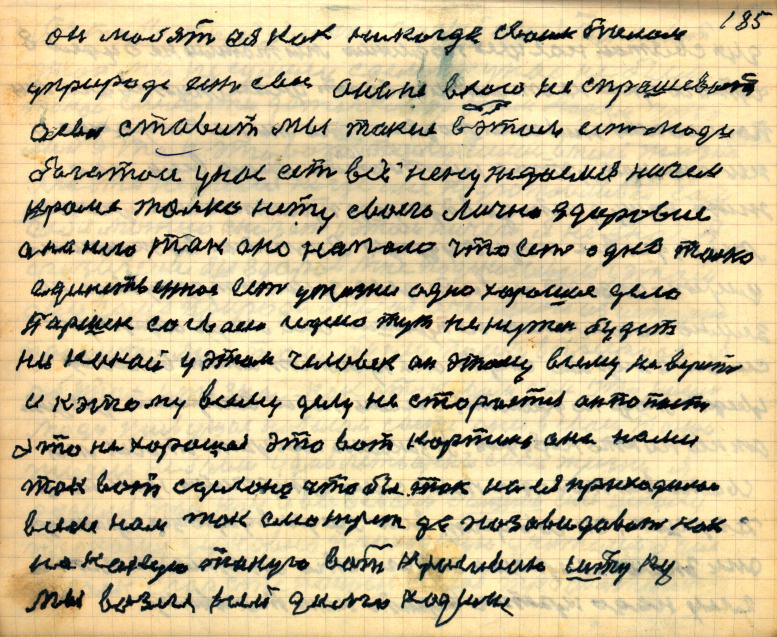 185
он мобят ея как никогда своим телом
уприроде есть свое она не вкого не спрашевает
а ева ставит мы такие вэтом есть люди
богатои унас есть всё ненуждаемся ничем
кроме только нету своего лично здоровие
она него так оно напало что есть одно только
единственное есть ужизни одно хорошое дело
Паршек со своею идеею тут ненужен будет
ни какой уэтом человек он этому всему не верит
и кэтому всему делу не старается
это не хорошая это вот картина она нами
так вот сделоно чтобы так на ея приходилось
всем нам так смотреть да позавидовать как
на какую такую вот красивою штуку
мы возля ней долго ходим